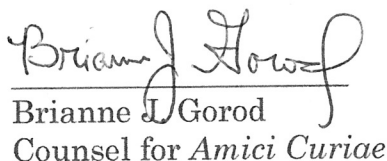 Brianne J Gorod
Brianne J. Gorod
Counsel for Amici Curiae